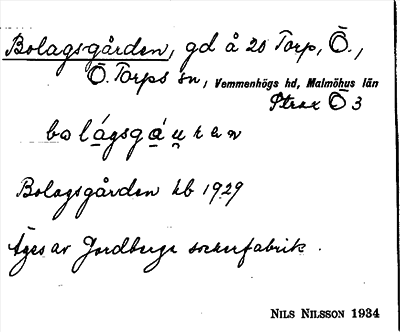 Bolagsgården, gd å 20 Torp, Ö.,
Ö. Torps sn, Vemmenhögs hd, Malmöhus län
Strax Ö 3
Bolagsgården kb 1929
Äges av Jordberga sockerfabrik.
NILS NILSSON 1934